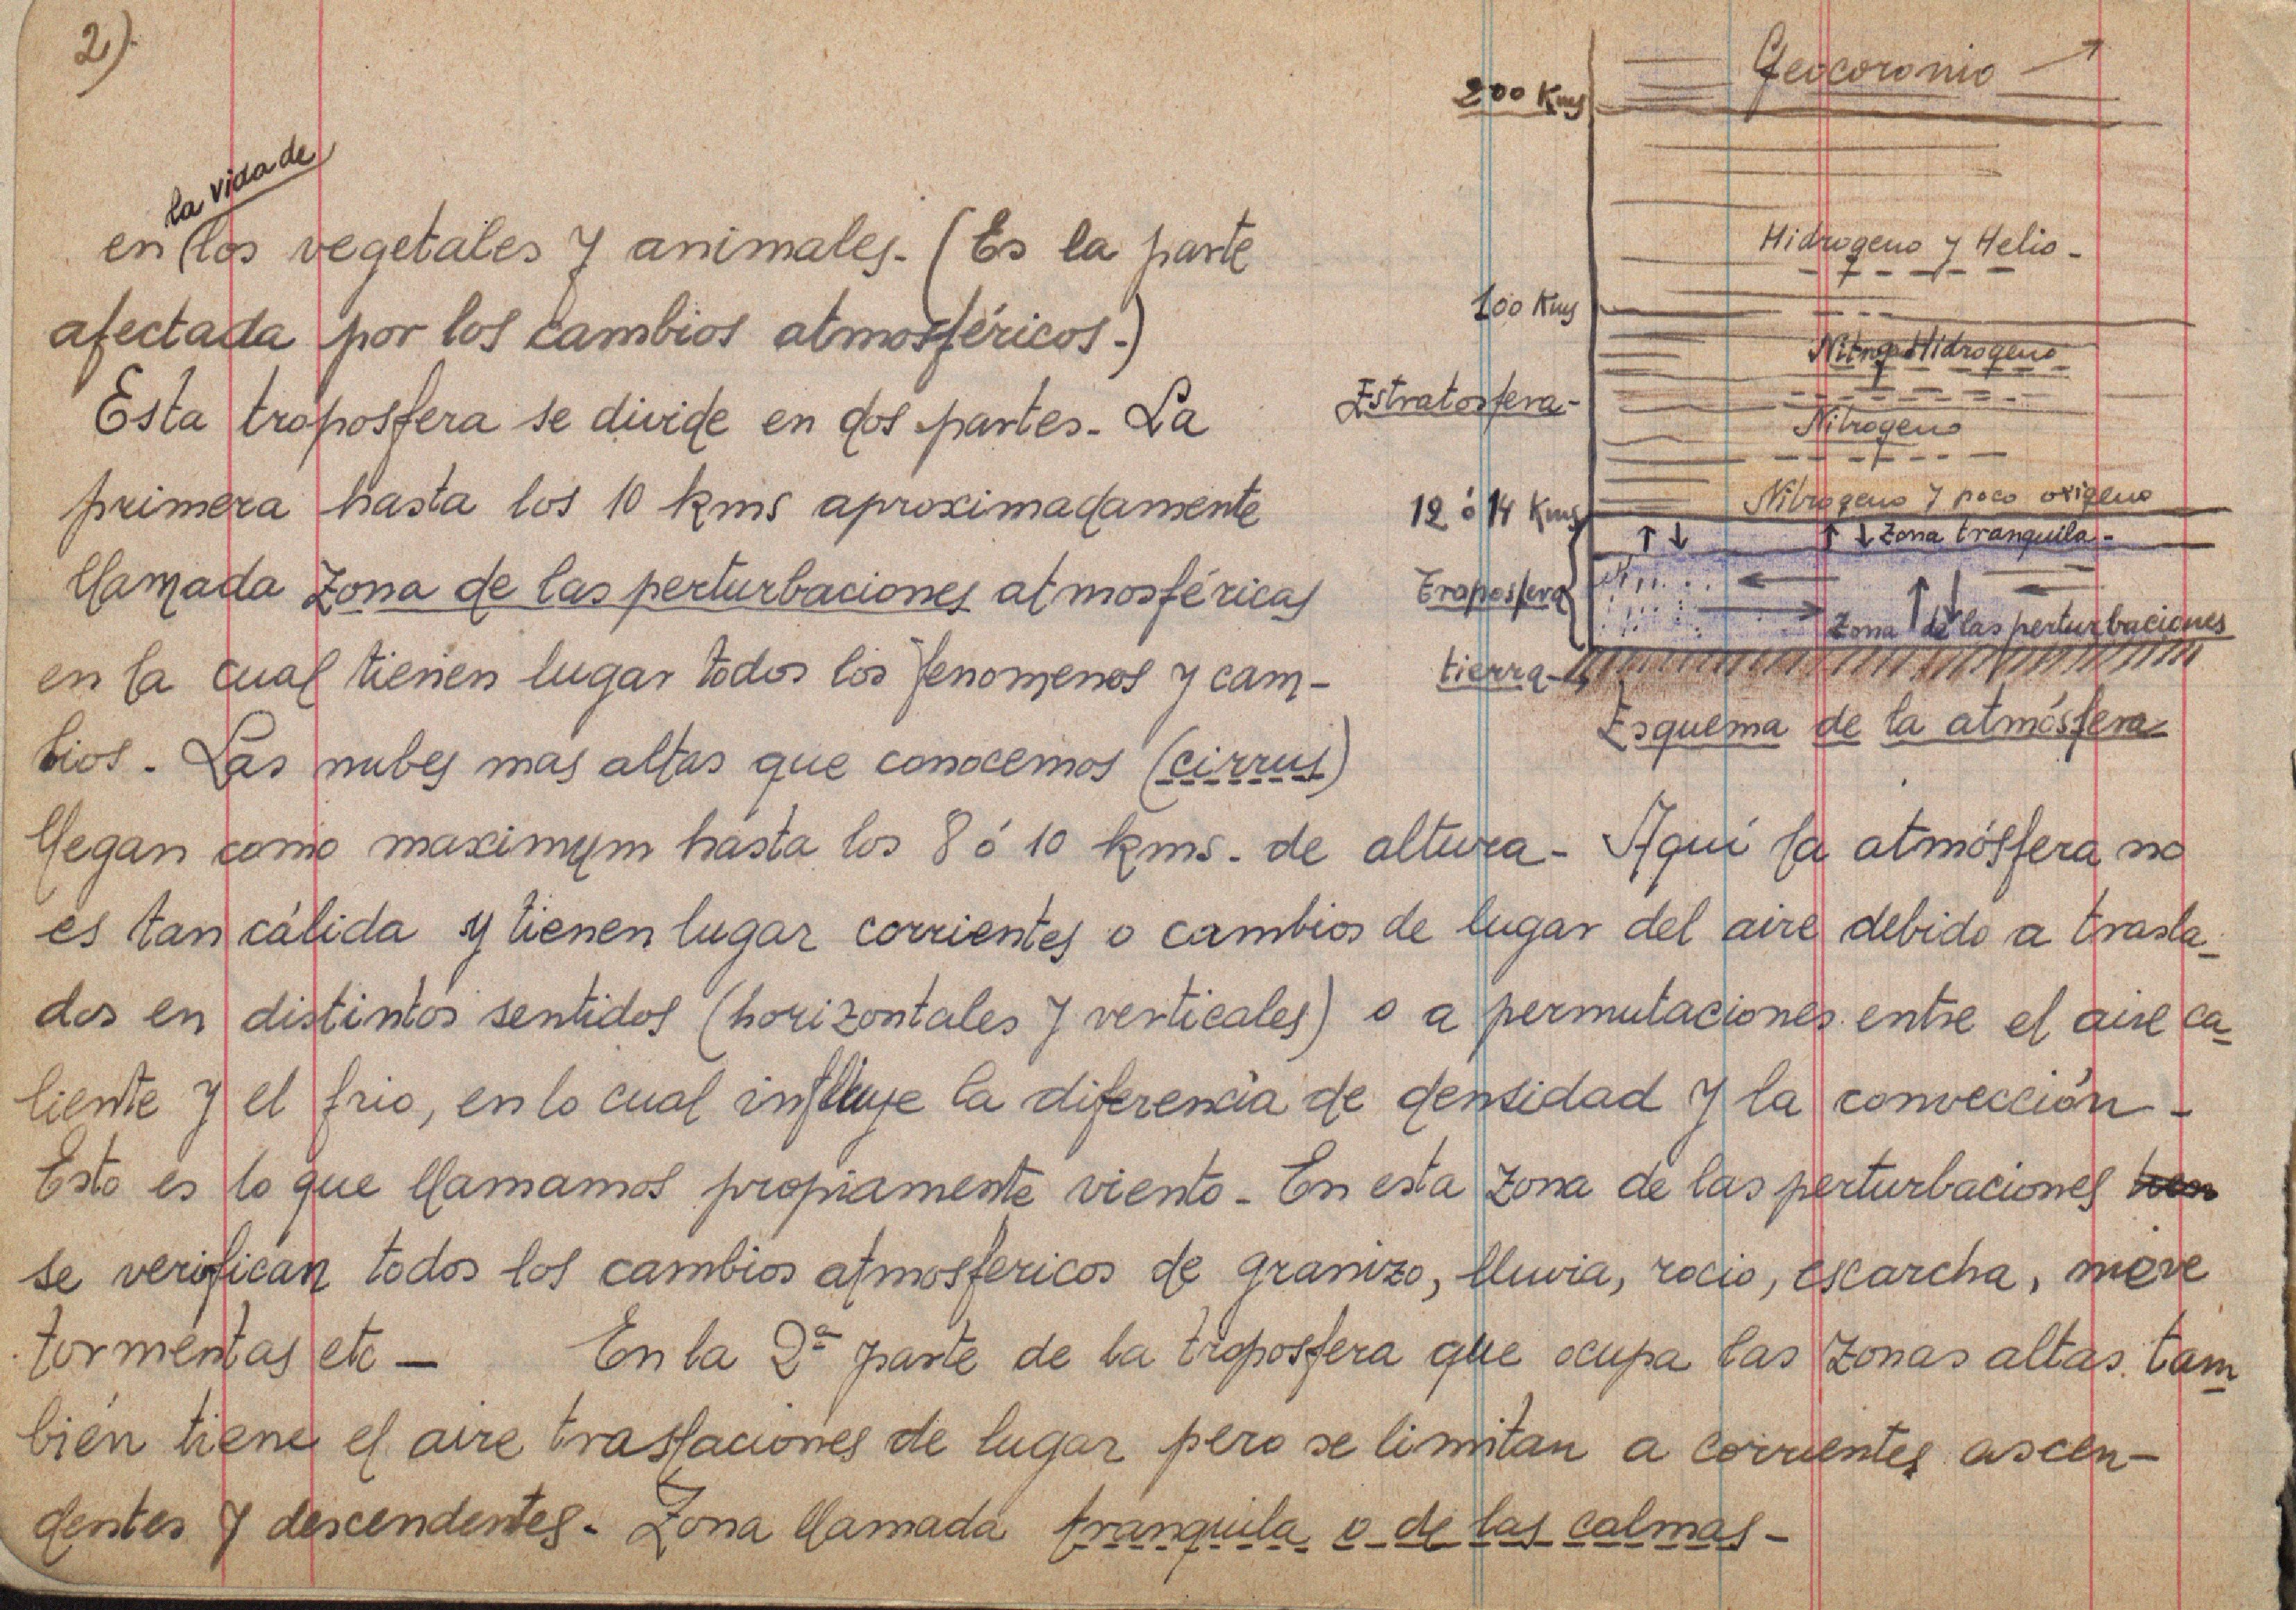 2)
Geocoronio
200 Kms
Hidrogeno y Helio -
100 Kms
Nitrog. Hidrogeno
Estratosfera -
Nitrogeno
Nitrogeno y poco oxigeno
12 ó 14 Kms
Zona tranquila -
Troposfera
Zona de las perturbaciones
tierra -
Esquema de la atmósfera
la vida de
en los vegetales y animales. (Es la parte
afectada por los cambios atmosféricos.)
Esta troposfera se divide en dos partes. La
primera hasta los 10 kms aproximadamente
llamada zona de las perturbaciones atmosféricas
en la cual tienen lugar todos los fenomenos y cam-
bios. Las nubes mas altas que conocemos (cirrus)
llegan como maximum hasta los 8 ó 10 kms. de altura - Aquí la atmósfera no
es tan cálida y tienen lugar corrientes o cambios de lugar del aire debido a trasla-
dos en distintos sentidos (horizontales y verticales) o a permutaciones entre el aire ca-
liente y el frio, en lo cual influye la diferencia de densidad y la convección -
Esto es lo que llamamos propiamente viento - En esta zona de las perturbaciones
se verifican todos los cambios atmosfericos de granizo, lluvia, rocio, escarcha, nieve
tormentas etc — En la 2ª parte de la troposfera que ocupa las zonas altas tam-
bién tiene el aire traslaciones de lugar pero se limitan a corrientes ascen-
dentes y descendentes. Zona llamada tranquila o de las calmas -